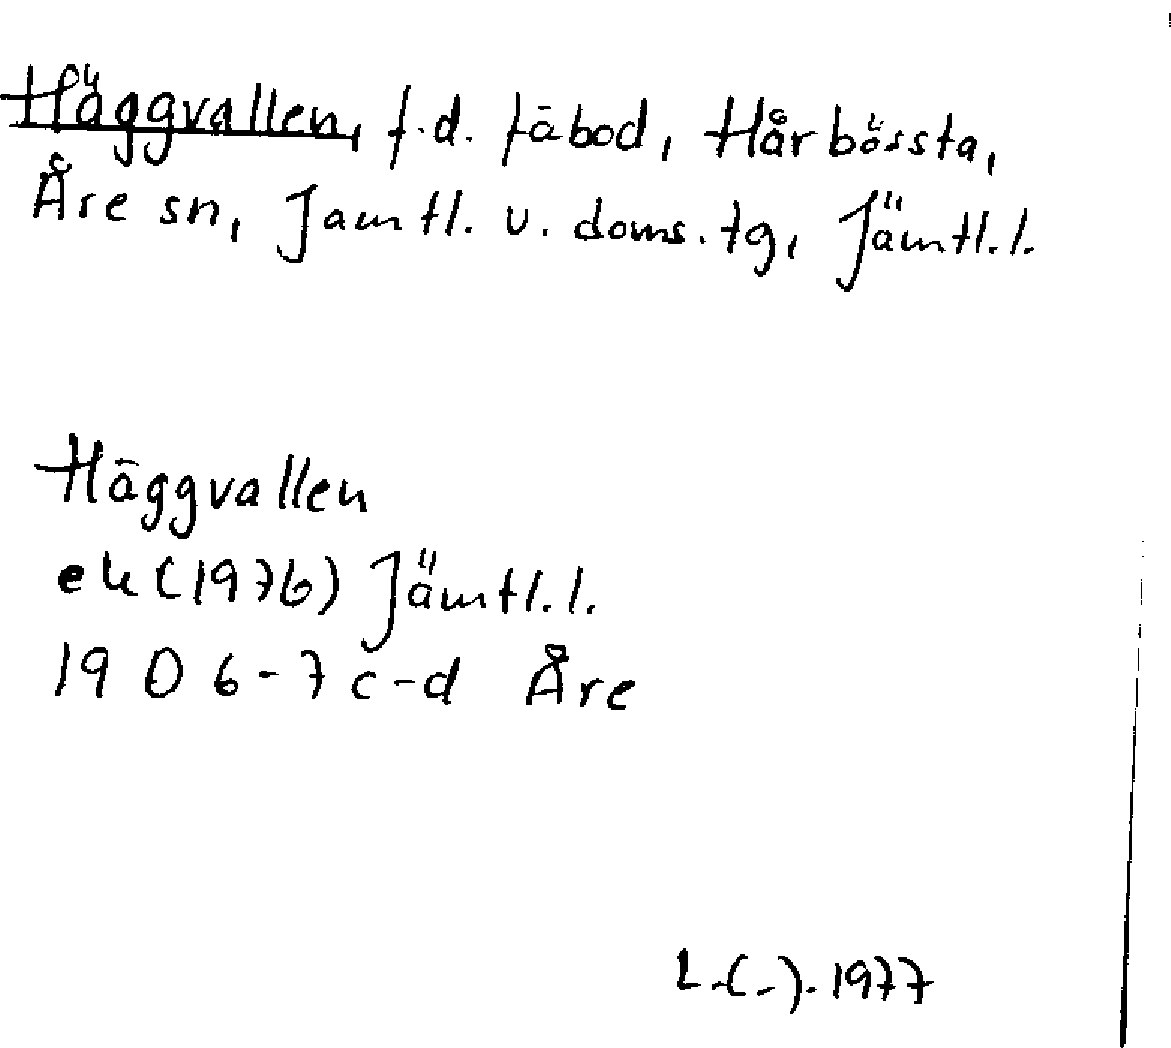 Häggvallen, f.d. fäbod, Hårbörsta,
Åre sn, Jamtl. v. doms.tg, Jämtl.l.
Häggvallen
ek (1976) Jämtl.l.
19 D 6-7 c-d Åre
L.(-). 1977